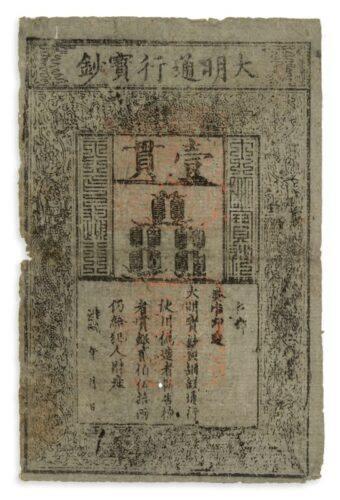 大明通行寶鈔
壹貫
奏准印造
大明寶鈔與銅錢通行
使用偽造者斬告捕
者賞銀貳佰伍拾兩
仍給犯人財產
年 月 日